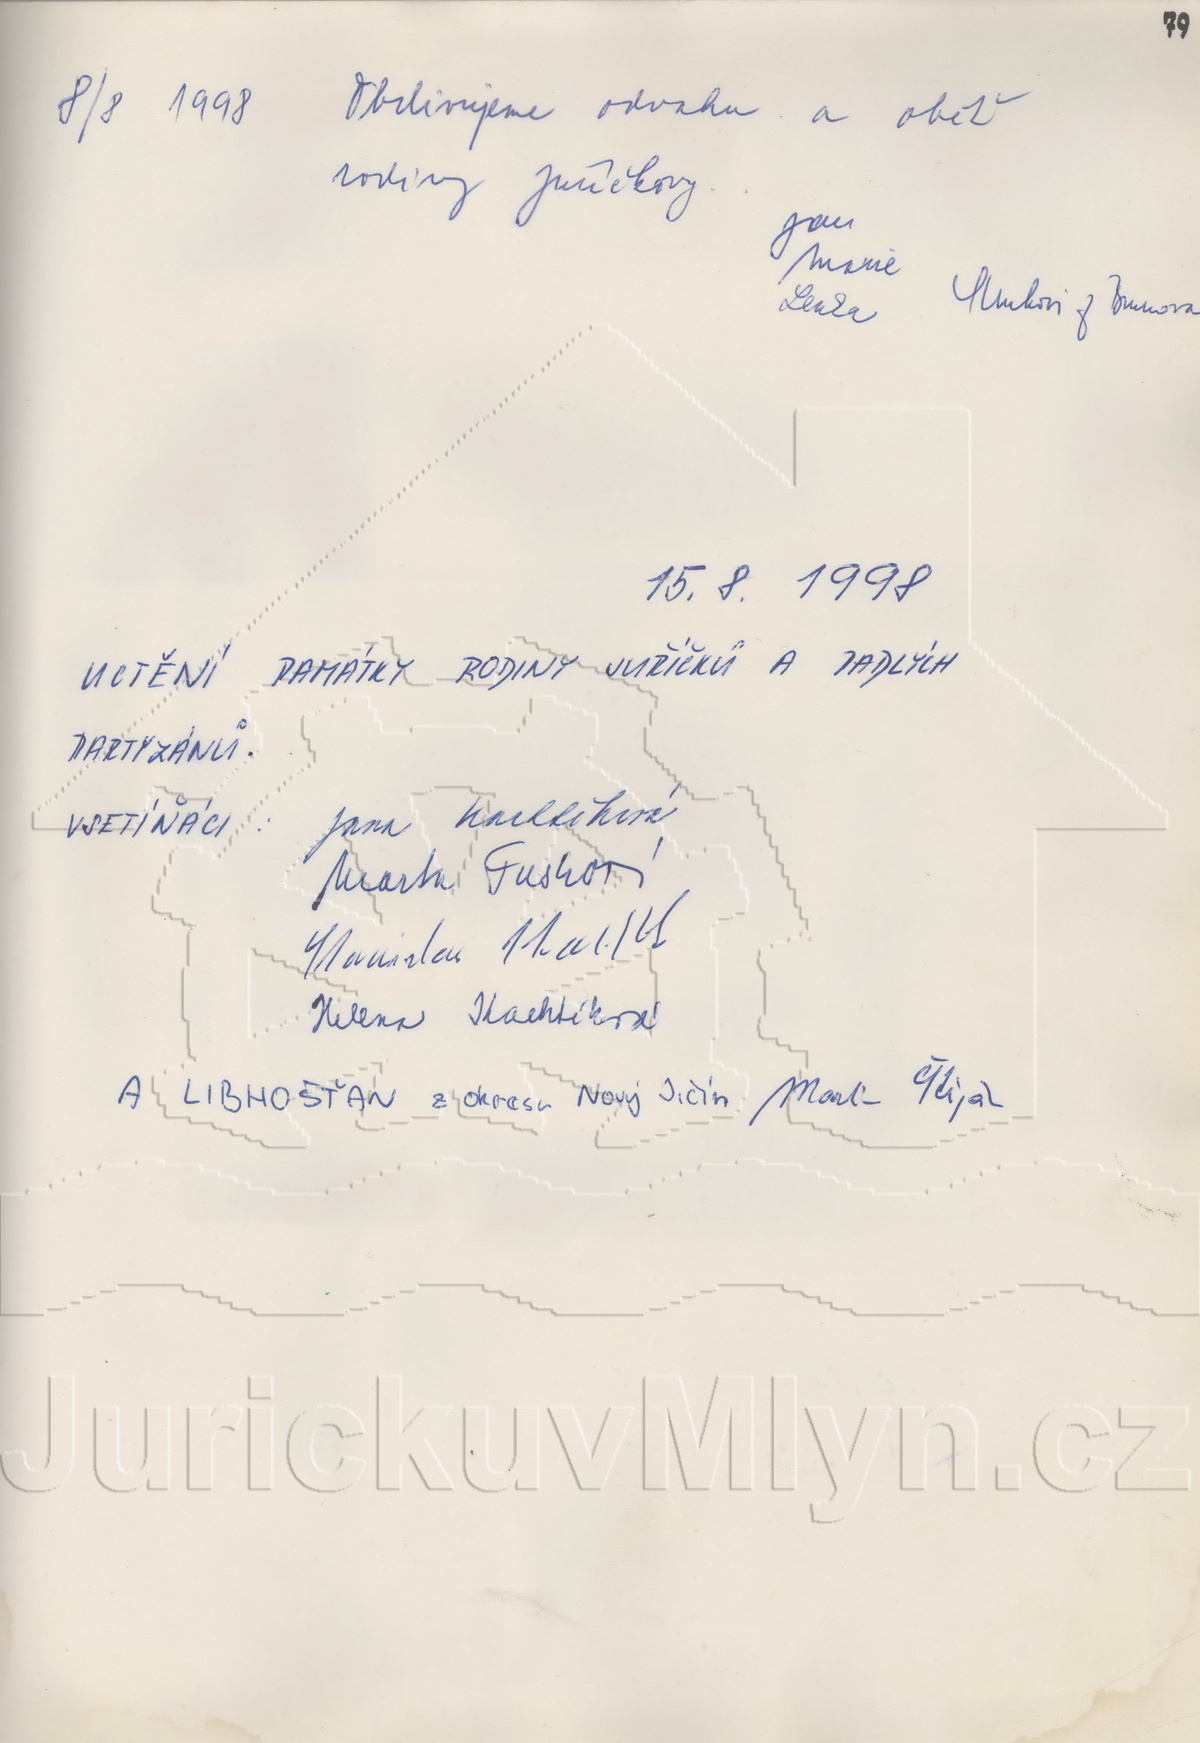 79
8/8 1998 Obdivujeme odvahu a oběť
rodiny Juříčkovy.
Jan
Marie
Lenka
15. 8. 1998
UCTĚNÍ PAMÁTKY RODINY JUŘÍČKŮ A PADLÝCH
PARTYZÁNŮ.
VSETÍŇÁCI: Jana
Marta Fusková
Stanislav
Helena Kachtíková
A LIBHOŠŤAN z okresu Nový Jičín Martin
JurickuvMlyn.cz